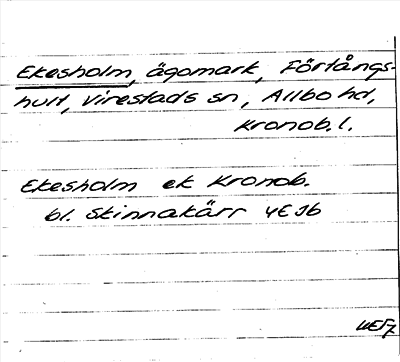 Ekesholm, ägomark, Förlångs-
hult, Virestads sn, Allbo hd,
Kronob. l.
Ekesholm ek Kronob.
bl. Skinnakärr 4E Jb